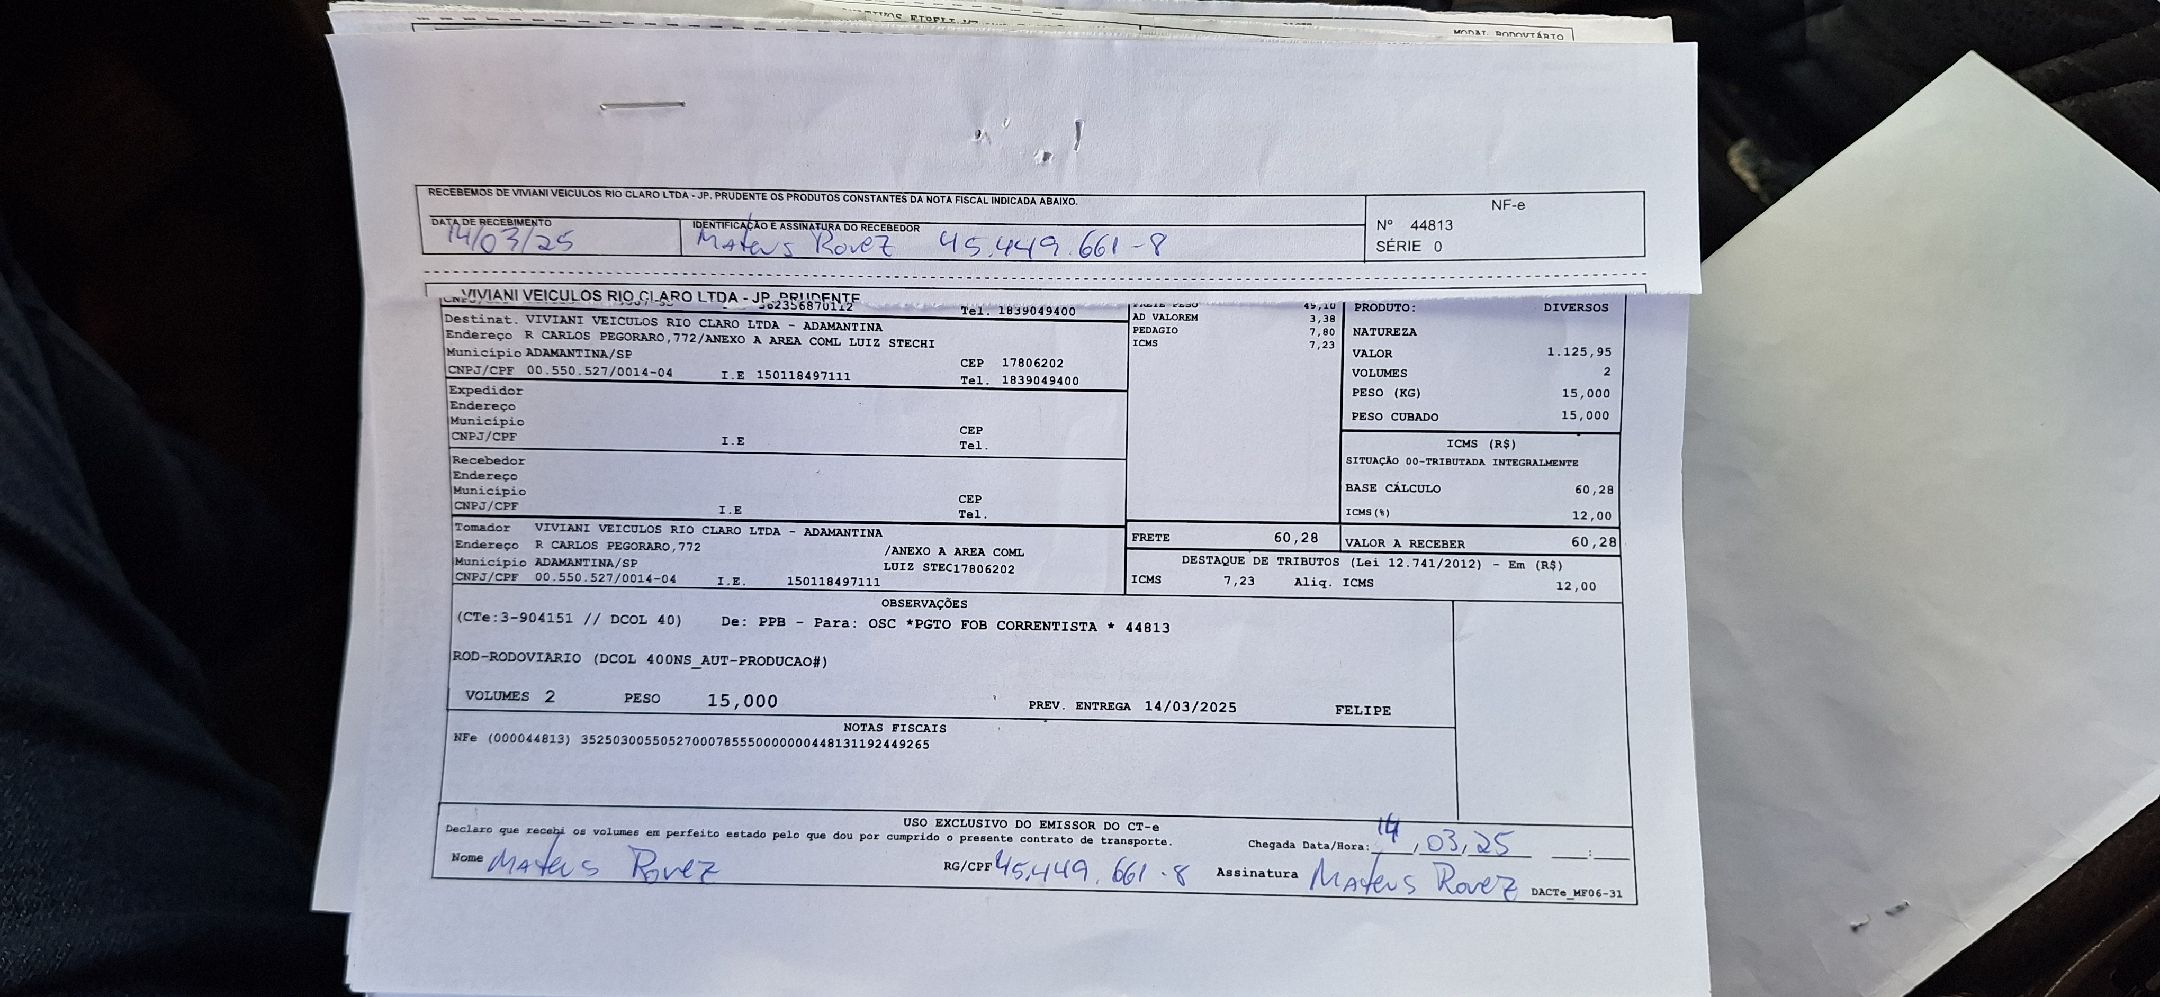 MODAL RODOVIÁRIO
RECEBEMOS DE VIVIANI VEICULOS RIO CLARO LTDA - JP. PRUDENTE OS PRODUTOS CONSTANTES DA NOTA FISCAL INDICADA ABAIXO.
NF-e
Nº 44813
SÉRIE 0
DATA DE RECEBIMENTO
14/03/25
IDENTIFICAÇÃO E ASSINATURA DO RECEBEDOR
Mateus Rovez 45.449.661-8
VIVIANI VEICULOS RIO CLARO LTDA - JP. PRUDENTE
562356870112 Tel. 1839049400
Destinat. VIVIANI VEICULOS RIO CLARO LTDA - ADAMANTINA
Endereço R CARLOS PEGORARO,772/ANEXO A AREA COML LUIZ STECHI
Município ADAMANTINA/SP CEP 17806202
CNPJ/CPF 00.550.527/0014-04 I.E 150118497111 Tel. 1839049400
Expedidor
Endereço
Município CEP
CNPJ/CPF I.E Tel.
Recebedor
Endereço
Município CEP
CNPJ/CPF I.E Tel.
Tomador VIVIANI VEICULOS RIO CLARO LTDA - ADAMANTINA
Endereço R CARLOS PEGORARO,772 /ANEXO A AREA COML
Município ADAMANTINA/SP LUIZ STEC17806202
CNPJ/CPF 00.550.527/0014-04 I.E. 150118497111
FRETE PESO 49,10
AD VALOREM 3,38
PEDAGIO 7,80
ICMS 7,23
FRETE 60,28
PRODUTO: DIVERSOS
NATUREZA
VALOR 1.125,95
VOLUMES 2
PESO (KG) 15,000
PESO CUBADO 15,000
ICMS (R$)
SITUAÇÃO 00-TRIBUTADA INTEGRALMENTE
BASE CÁLCULO 60,28
ICMS(%) 12,00
VALOR A RECEBER 60,28
DESTAQUE DE TRIBUTOS (Lei 12.741/2012) - Em (R$)
ICMS 7,23 Aliq. ICMS 12,00
OBSERVAÇÕES
(CTe:3-904151 // DCOL 40) De: PPB - Para: OSC *PGTO FOB CORRENTISTA * 44813
ROD-RODOVIARIO (DCOL 400NS_AUT-PRODUCAO#)
VOLUMES 2 PESO 15,000 PREV. ENTREGA 14/03/2025 FELIPE
NOTAS FISCAIS
NFe (000044813) 35250300550527000785550000000448131192449265
USO EXCLUSIVO DO EMISSOR DO CT-e
Declaro que recebi os volumes em perfeito estado pelo que dou por cumprido o presente contrato de transporte.
Chegada Data/Hora: 14,03,25 __:__
Nome Mateus Rovez RG/CPF 45.449.661-8 Assinatura Mateus Rovez DACTe_MF06-31